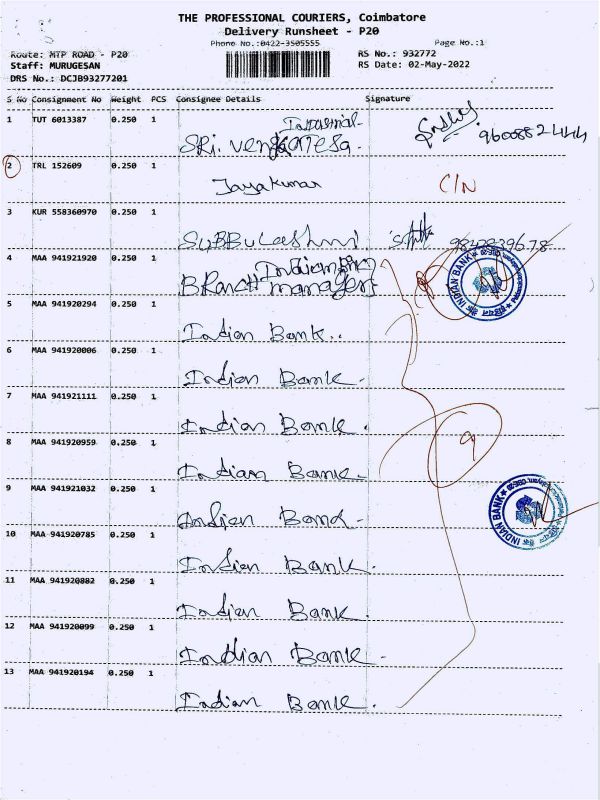 THE PROFESSIONAL COURIERS, Coimbatore
Delivery Runsheet - P20
Phone No.:0422-3505555
Page No.:1
Route: MTP ROAD - P20
RS No.: 932772
Staff: MURUGESAN
RS Date: 02-May-2022
DRS No.: DCJB93277201
S No Consignment No Weight PCS Consignee Details Signature
1 TUT 6013387 0.250 1
SRI. 
2 TRL 152609 0.250 1
Jayakumar CIN
3 KUR 558360970 0.250 1
SUBBULASHMI
4 MAA 941921920 0.250 1
Indian
Branch manager
INDIAN BANK
5 MAA 941920294 0.250 1
Indian Bank..
6 MAA 941920006 0.250 1
Indian Bank
7 MAA 941921111 0.250 1
Indian Bank.
9
8 MAA 941920959 0.250 1
Indian Bank
9 MAA 941921032 0.250 1
Indian
INDIAN BANK
10 MAA 941920785 0.250 1
Indian Bank.
11 MAA 941920882 0.250 1
Indian Bank.
12 MAA 941920099 0.250 1
Indian Bank
13 MAA 941920194 0.250 1
Indian Bank.